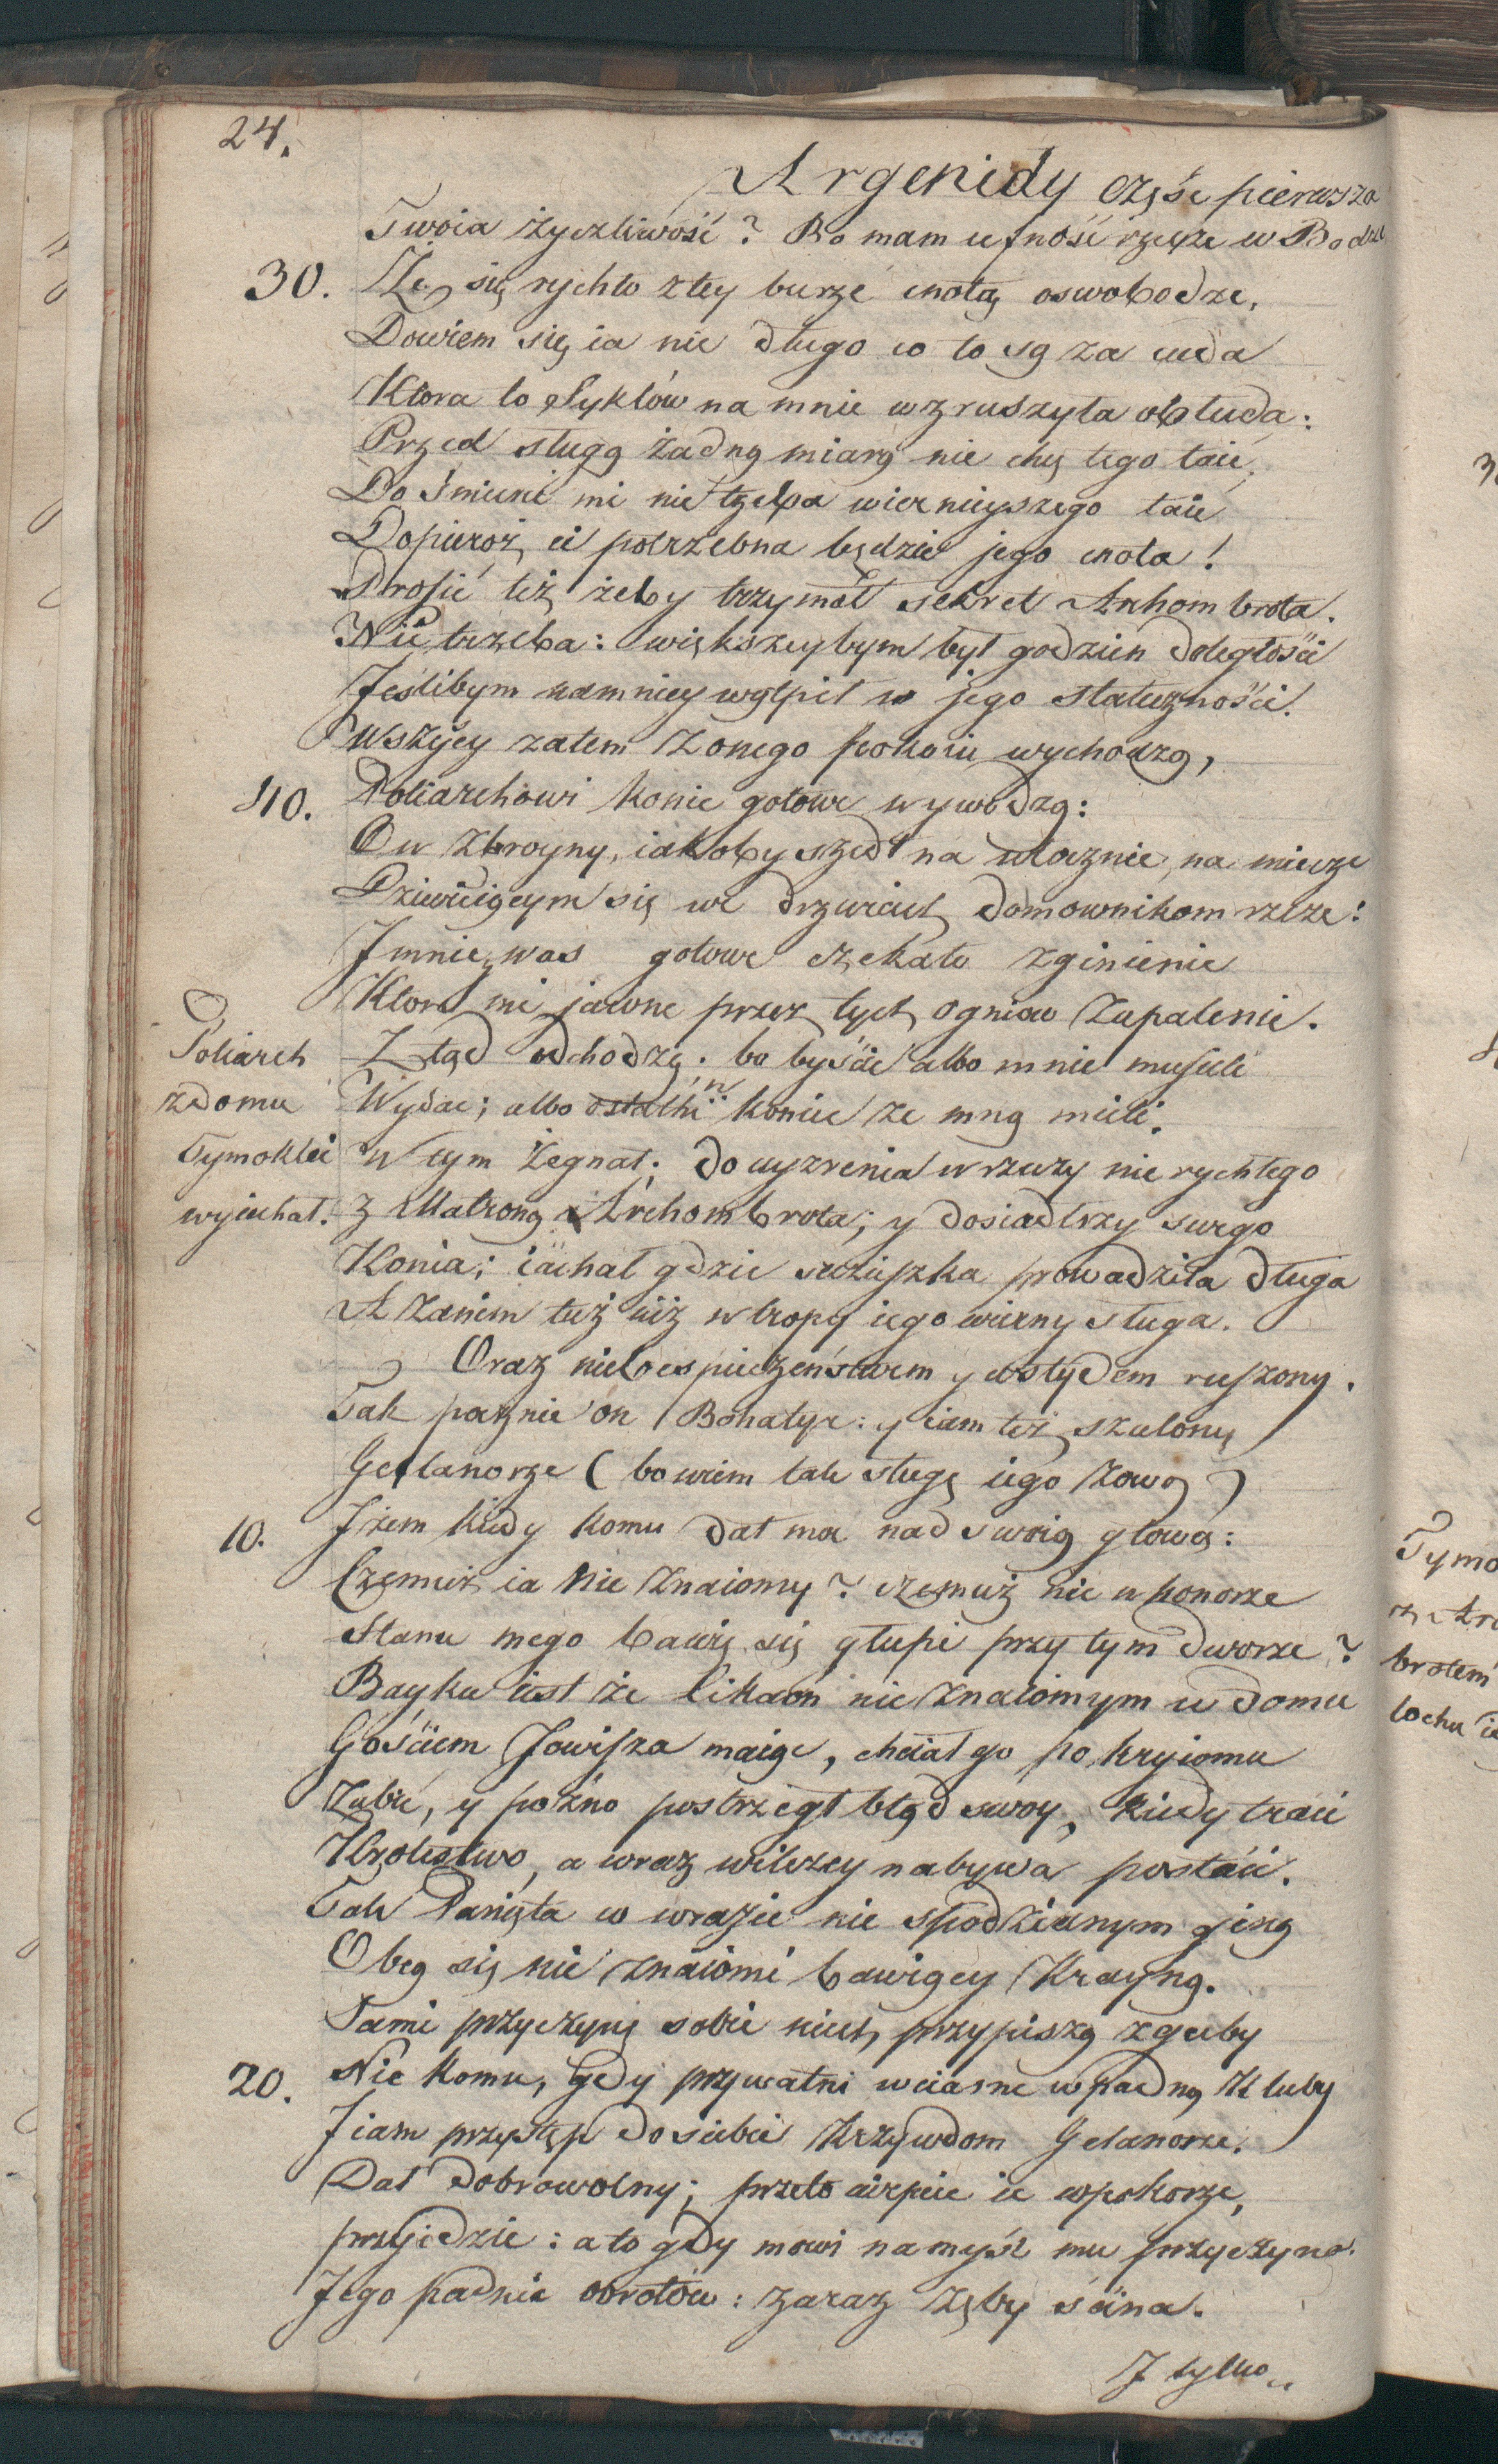 24.
Argenidy Częśc pierwsza
Twoia życzliwość? Bo mam ufność rzecze w Bodze
30. Że się rychło złey burze cnotą oswobodze,
Dowiem się ia nie długo co to są za cuda
Ktora to Sykłów na mnie wzruszyła obłuda:
Przed sługą żadną miarą nie chcę tego taić,
Do śmierci mi nie trzeba wiernieyszego taić
Dopieroż ci potrzebna będzie jego cnota!
Prosić też żeby trzymał sekret Arhombrota.
Nie trzeba: większeybym był godzien doległości
Jeslibym namniey wątpił w jego stateczności.
Wszyscy zatem z onego pokoiu wychodzą,
40. Poliarchowi konie gotowe wywodzą:
On zbroyny, iakoby szedł na włocznie, na miecze
Dziwuiącym się we drzwiach domownikom rzecze:
I mnie, was gotowe czekało zginienie
Ktore mi jawne przez tych ogniow zapalenie.
Ztąd odchodzę. bo byście albo mnie musieli
Wydac; albo ostatni koniec ze mną mieli.
W tym żegnał; do uyzrenia wrzczy nie rychłego
Z Matroną Archombrota; y dosiadłszy swego
Konia; iächał gdzie scziszka prowadziła długa
A zanim tuż iuż w tropy iego wierny sługa.
Poliarch
z domu
Tymoklei
wyiechał.
Oraz niebespieczeństwem y wstydem ruszony.
Tak pocznie on Bohatyr: y iam też szalony
Gelanorze (bowiem tak sługę iego zową)
10. Jżem kiedy komu dał moc nad swoią głową:
Czemuż ia nie znaiomy? czemuż nie w honorze
Stanu mego bawię się głupi przy tym dworze?
Bayka iest że Likaon nie znaiomym w domu
Gościem Jowisza maiąc, chciał go po kryiomu
Zabić, y poźno postrzegł błąd swoy, kiedy traci
Krolestwo, a wraz wilczey nabywa postaci.
Tak Panięta w wrazie nie spodzianym giną
Obcą się nie znaiomi bawiący krayną.
Sami przyczynę sobie niech przypiszą zguby
20. Nie komu, Gdy prywatni wciasne wpadną kluby
Jiam przystęp do siebie krzywdom Gelanorze.
Dał dobrowolny; przeto cierpie ie w pokorze,
przyidzie: a to gdy mowi na myśl mu przyczyna
Jego padnie obrotów: zaraz zęby ścina.
J tylko